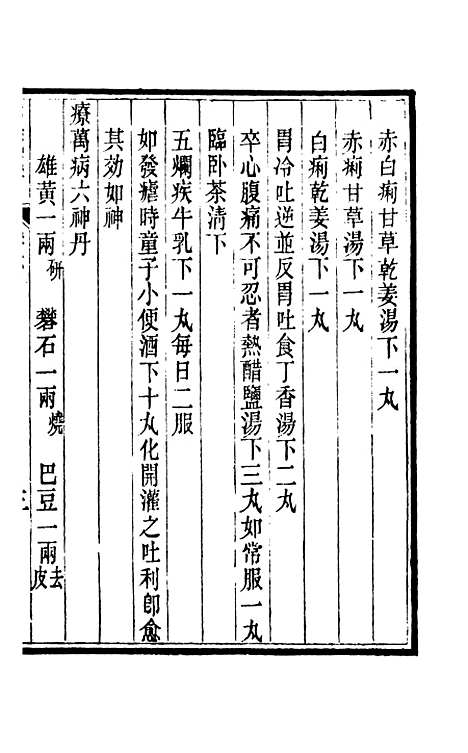 赤白痢甘草乾姜湯下一丸
赤痢甘草湯下一丸
白痢乾姜湯下一丸
胃冷吐逆並反胃吐食丁香湯下二丸
卒心腹痛不可忍者熱醋鹽湯下三丸如常服一丸
臨卧茶清下
五爛疾牛乳下一丸每日二服
如發瘧時童子小便酒下十丸化開灌之吐利卽愈
其効如神
療萬病六神丹
雄黃一兩研 礬石一兩燒 巴豆一兩去皮